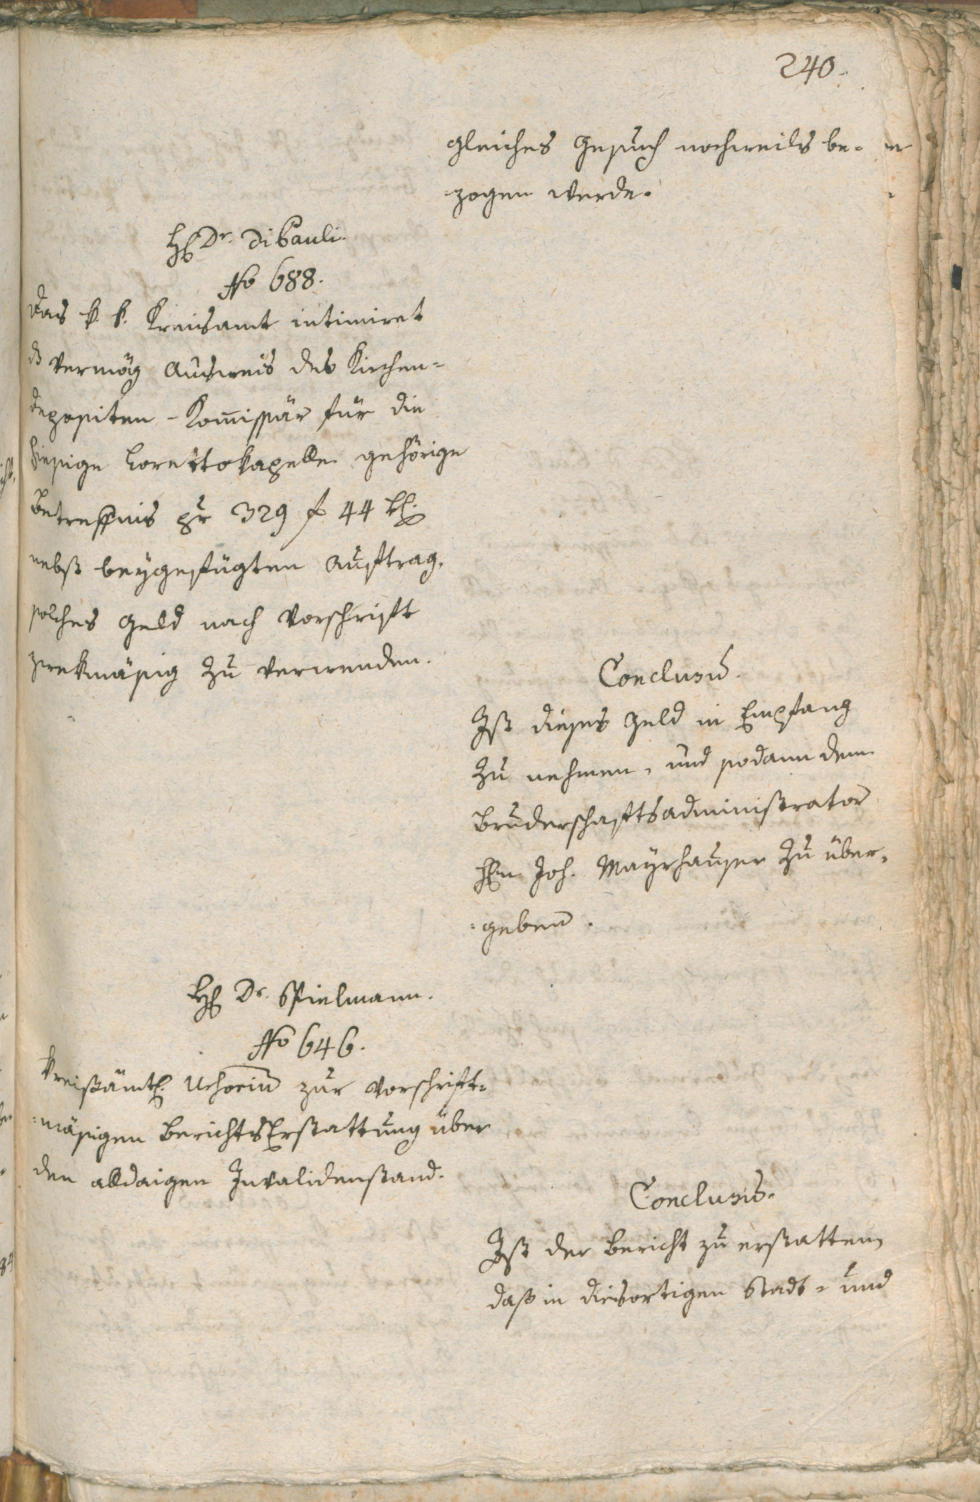 240.
gleiches Gesuch nochweils be-
zogen werde.
H Dr. Di Pauli.
No 688.
Das k. k. Kreisamt intimiret
vermög Ausweis des Kirchen-
depositen-Kom̄issär für die
hiesige Loretokapelle gehörige
Betreffnis pr 329 f 44 k.
nebst beygefügten Auftrag,
solches Geld nach Vorschrift
zwekmäsig zu verwenden.
Conclusū.
Ist dieses Geld in Empfang
zu nehmen, und sodann dem
Bruderschaftsadministrator
Hrn Joh. Mayrhauser zu über-
geben.
H Dr. Spielmann.
No 646.
Kreisämtl. zur Vorschrift-
mäsigen BerichtsErstattung über
den alldaigen Invalidenstand.
Conclusis.
Ist der Bericht zu erstatten,
daß in diesortigen Stadt- und